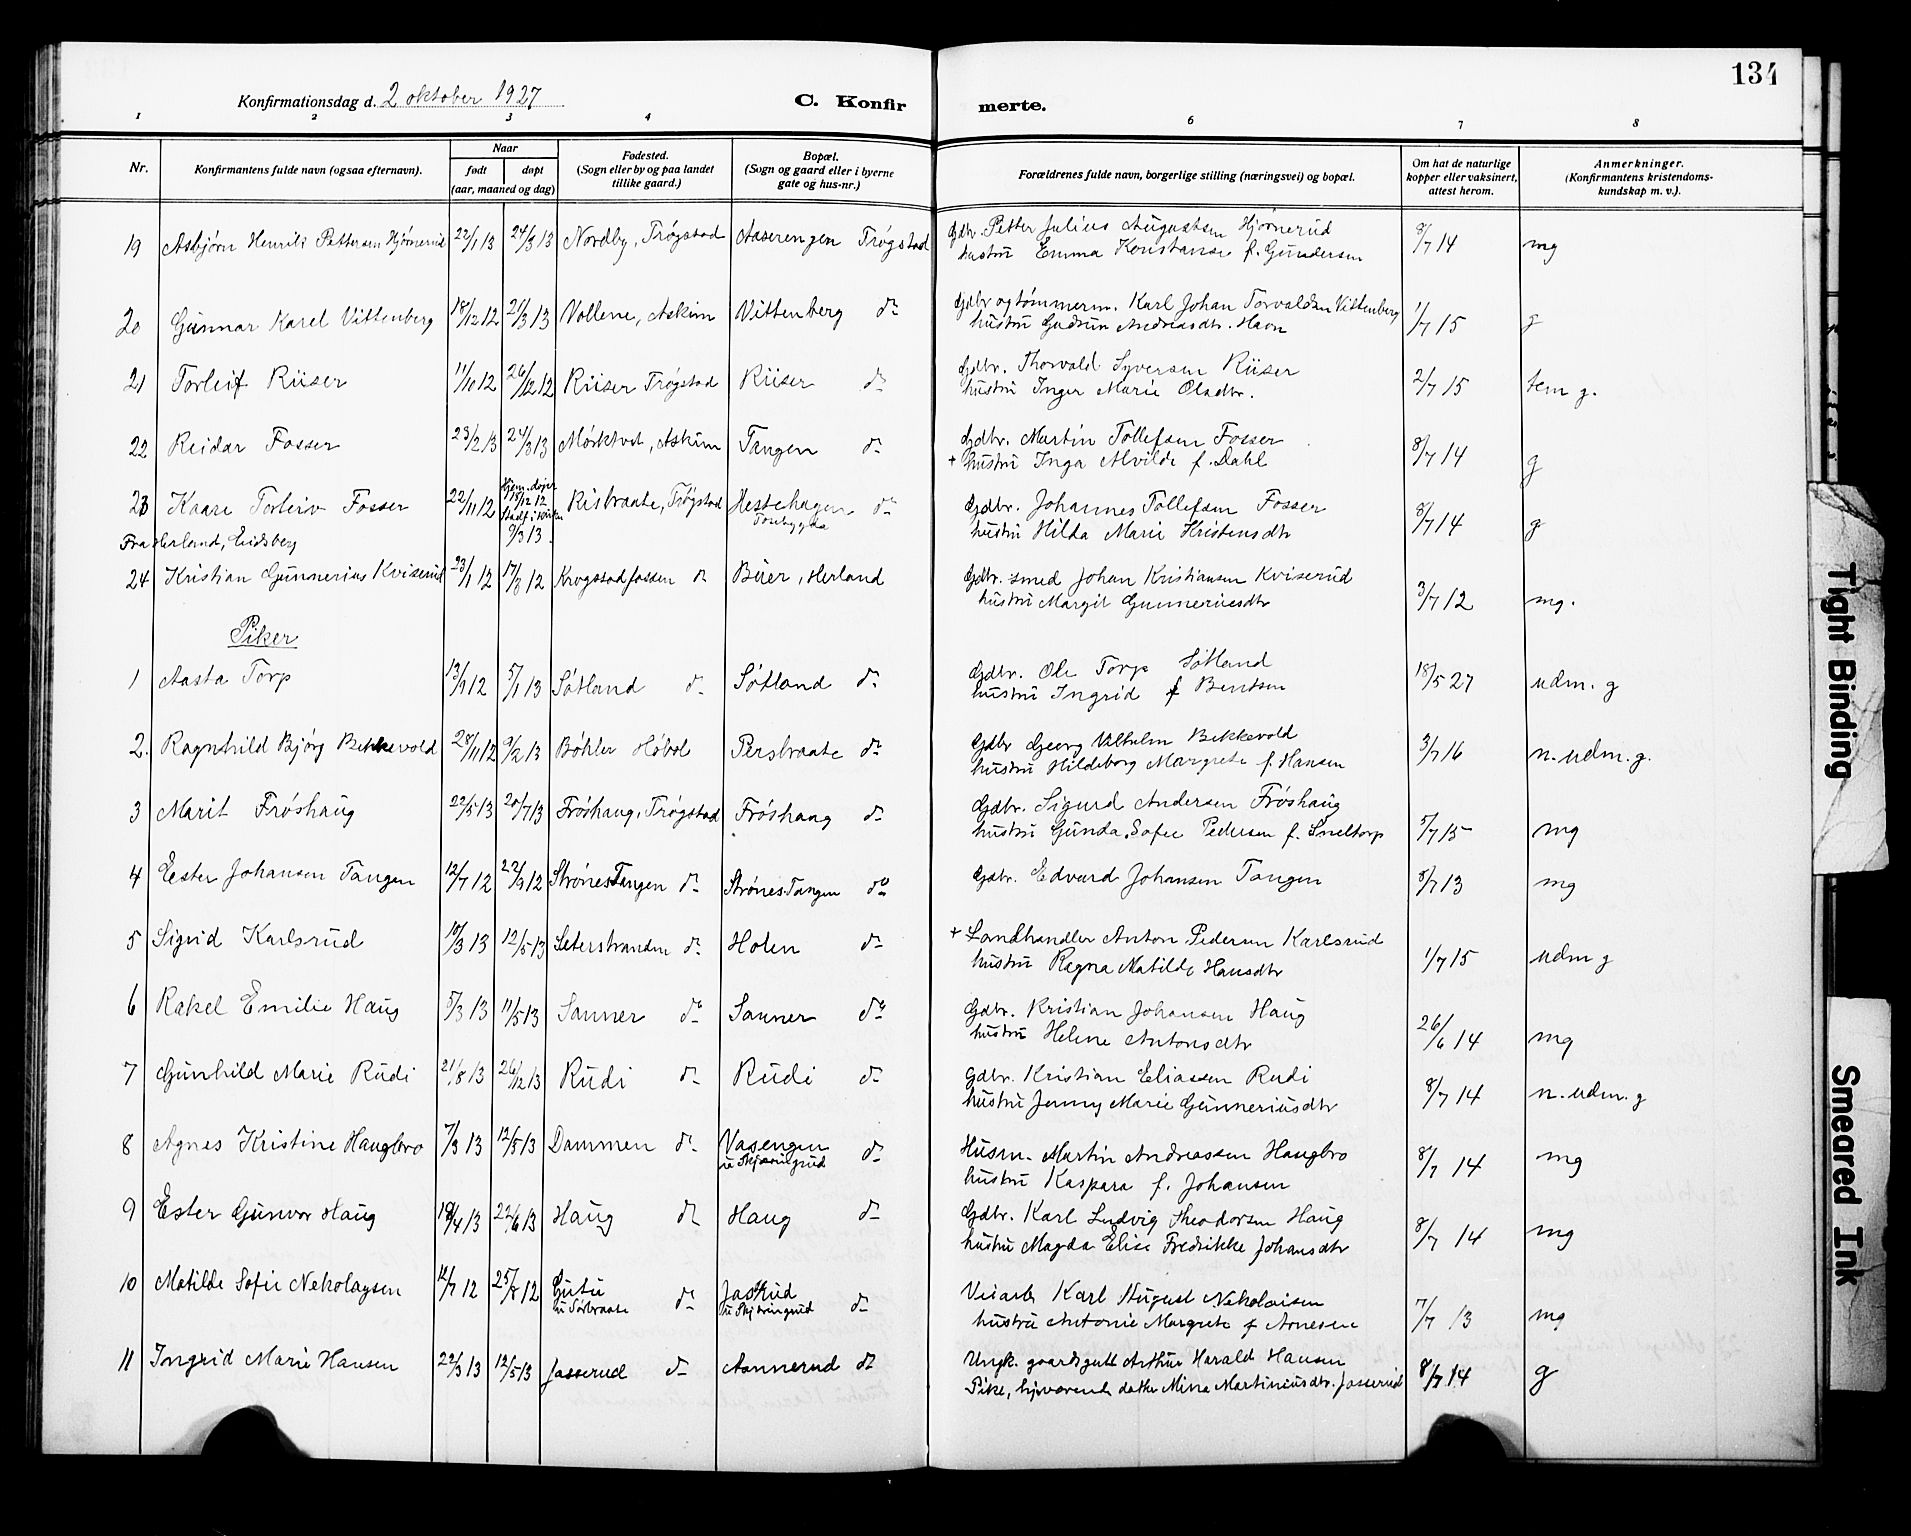 134
Konfirmationsdag d. 2 oktober 1927
C. Konfir merte.
1 2 3 4 6 7 8
Nr.
Konfirmantens fulde navn (ogsaa efternavn).
Naar
født døpt
(aar, maaned og dag)
Fødested.
(Sogn eller by og paa landet
tillike gaard.)
Bopæl.
(Sogn og gaard eller i byerne
gate og hus-nr.)
Forældrenes fulde navn, borgerlige stilling (næringsvei) og bopæl.
Om hat de naturlige
kopper eller vaksinert,
attest herom.
Anmerkninger.
(Konfirmantens kristendoms-
kundskap m. v.).
19 Asbjørn Henrik Pettersen Hjørnerud 22/1 13 24/3 13 Nordby, Trøgstad Aaserengen Trøgstad Gdbr. Petter Julius Augustsen Hjørnerud 9/7 14 mg
hustru Emma Konstanse f. Gundersen
20 Gunnar Karel Vittenberg 18/12 12 21/3 13 Vollene, Askim Vittenberg do Gdbr og tømmerm. Karl Johan Torvaldsen Vittenberg 1/7 15 g
hustru Gudrun Andreasdtr. Havn
21 Torleif Riiser 11/10 12 26/12 12 Riiser Trøgstad Riiser do Gdbr. Thorvald Syversen Riiser 2/7 15 tem g.
hustru Inger Marie Olsdtr.
22 Reidar Fosser 23/2 13 24/3 13 Mørktvet, Askim Tangen do Gdbr. Martin Tollefsen Fosser 8/7 14 g
+ hustru Inga Alvilde f. Dahl
23 Kaare Torleiv Fosser 22/11 12 Hjem. døpt 15/12 12 Stadf. i kirken 9/3 13. Risbraate, Trøgstad Hestehagen do Gdbr. Johannes Tollefsen Fosser 8/7 14 g
hustru Hilda Marie Kristensdtr
Fra Herland, Eidsberg
24 Kristian Gunnerius Kviserud 23/1 12 17/3 12 Krogstadfossen do Buer, Herland Gdbr. smed Johan Kristiansen Kviserud 3/7 12 mg.
hustru Margit Gunneriusdtr
Piker
1 Aasta Torp 13/9 12 5/1 13 Søtland do Søtland do Gdbr. Ole Torp Søtland 18/5 27 udm. g
hustru Ingrid f Bentsen
2. Ragnhild Bjørg Bekkevold 28/11 12 9/2 13 Bøhler Høbøl Persbraate do Gdbr Georg Vilhelm Bekkevold 3/7 16 n. udm. g.
hustru Hildeborg Margrete f. Hansen
3 Marit Frøshaug 22/5 13 20/7 13 Frøshaug, Trøgstad Frøshaug do Gdbr. Sigurd Andersen Frøshaug 5/7 15 mg
hustru Gunda Sofie Pedersen f. Sneltorp
4 Ester Johansen Tangen 12/7 12 22/9 12 Strønes Tangen do Strønes Tangen do Gdbr. Edvard Johansen Tangen 8/7 13 mg
5 Sigrid Karlsrud 10/3 13 12/5 13 Seterstranden do Holen do + Landhandler Anton Pedersen Karlsrud 1/7 15 udm g
hustru Ragna Matilde Hansdtr
6 Rakel Emilie Haug 5/3 13 11/5 13 Sanner do Sanner do Gdbr. Kristian Johansen Haug 26/6 14 mg
hustru Helene Antonsdtr
7 Gunhild Marie Rudi 21/8 13 26/12 13 Rudi do Rudi do Gdbr. Kristian Eliassen Rudi 8/7 14 n. udm. g
hustru Jenny Marie Gunneriusdtr
8 Agnes Kristine Haugbro 7/3 13 12/5 13 Dammen do Vasengen u/ Skjøringrud do Husm. Martin Andreassen Haugbro 8/7 14 mg
hustru Kaspara f. Johansen
9 Ester Gunvor Haug 18/4 13 22/6 13 Haug do Haug do Gdbr. Karl Ludvig Theodorsen Haug 8/7 14 mg
hustru Magda Elise Fredrikke Johansdtr
10 Matilde Sofie Nekolaysen 12/7 12 25/8 12 Gutu u/ Sørbraate do Jaskud u/ Skjøringrud do Veiarb Karl August Nekolaisen 7/7 13 mg
hustru Antonie Margrete f Arnesen
11 Ingrid Marie Hansen 22/3 13 12/5 13 Josserud do Aannerud do Ungk. gaardsgutt Arthur Harald Hansen 8/7 14 g
Pike, hjemværende datter Mina Martiniusdtr. Josserud
Tight Binding
Smeared Ink